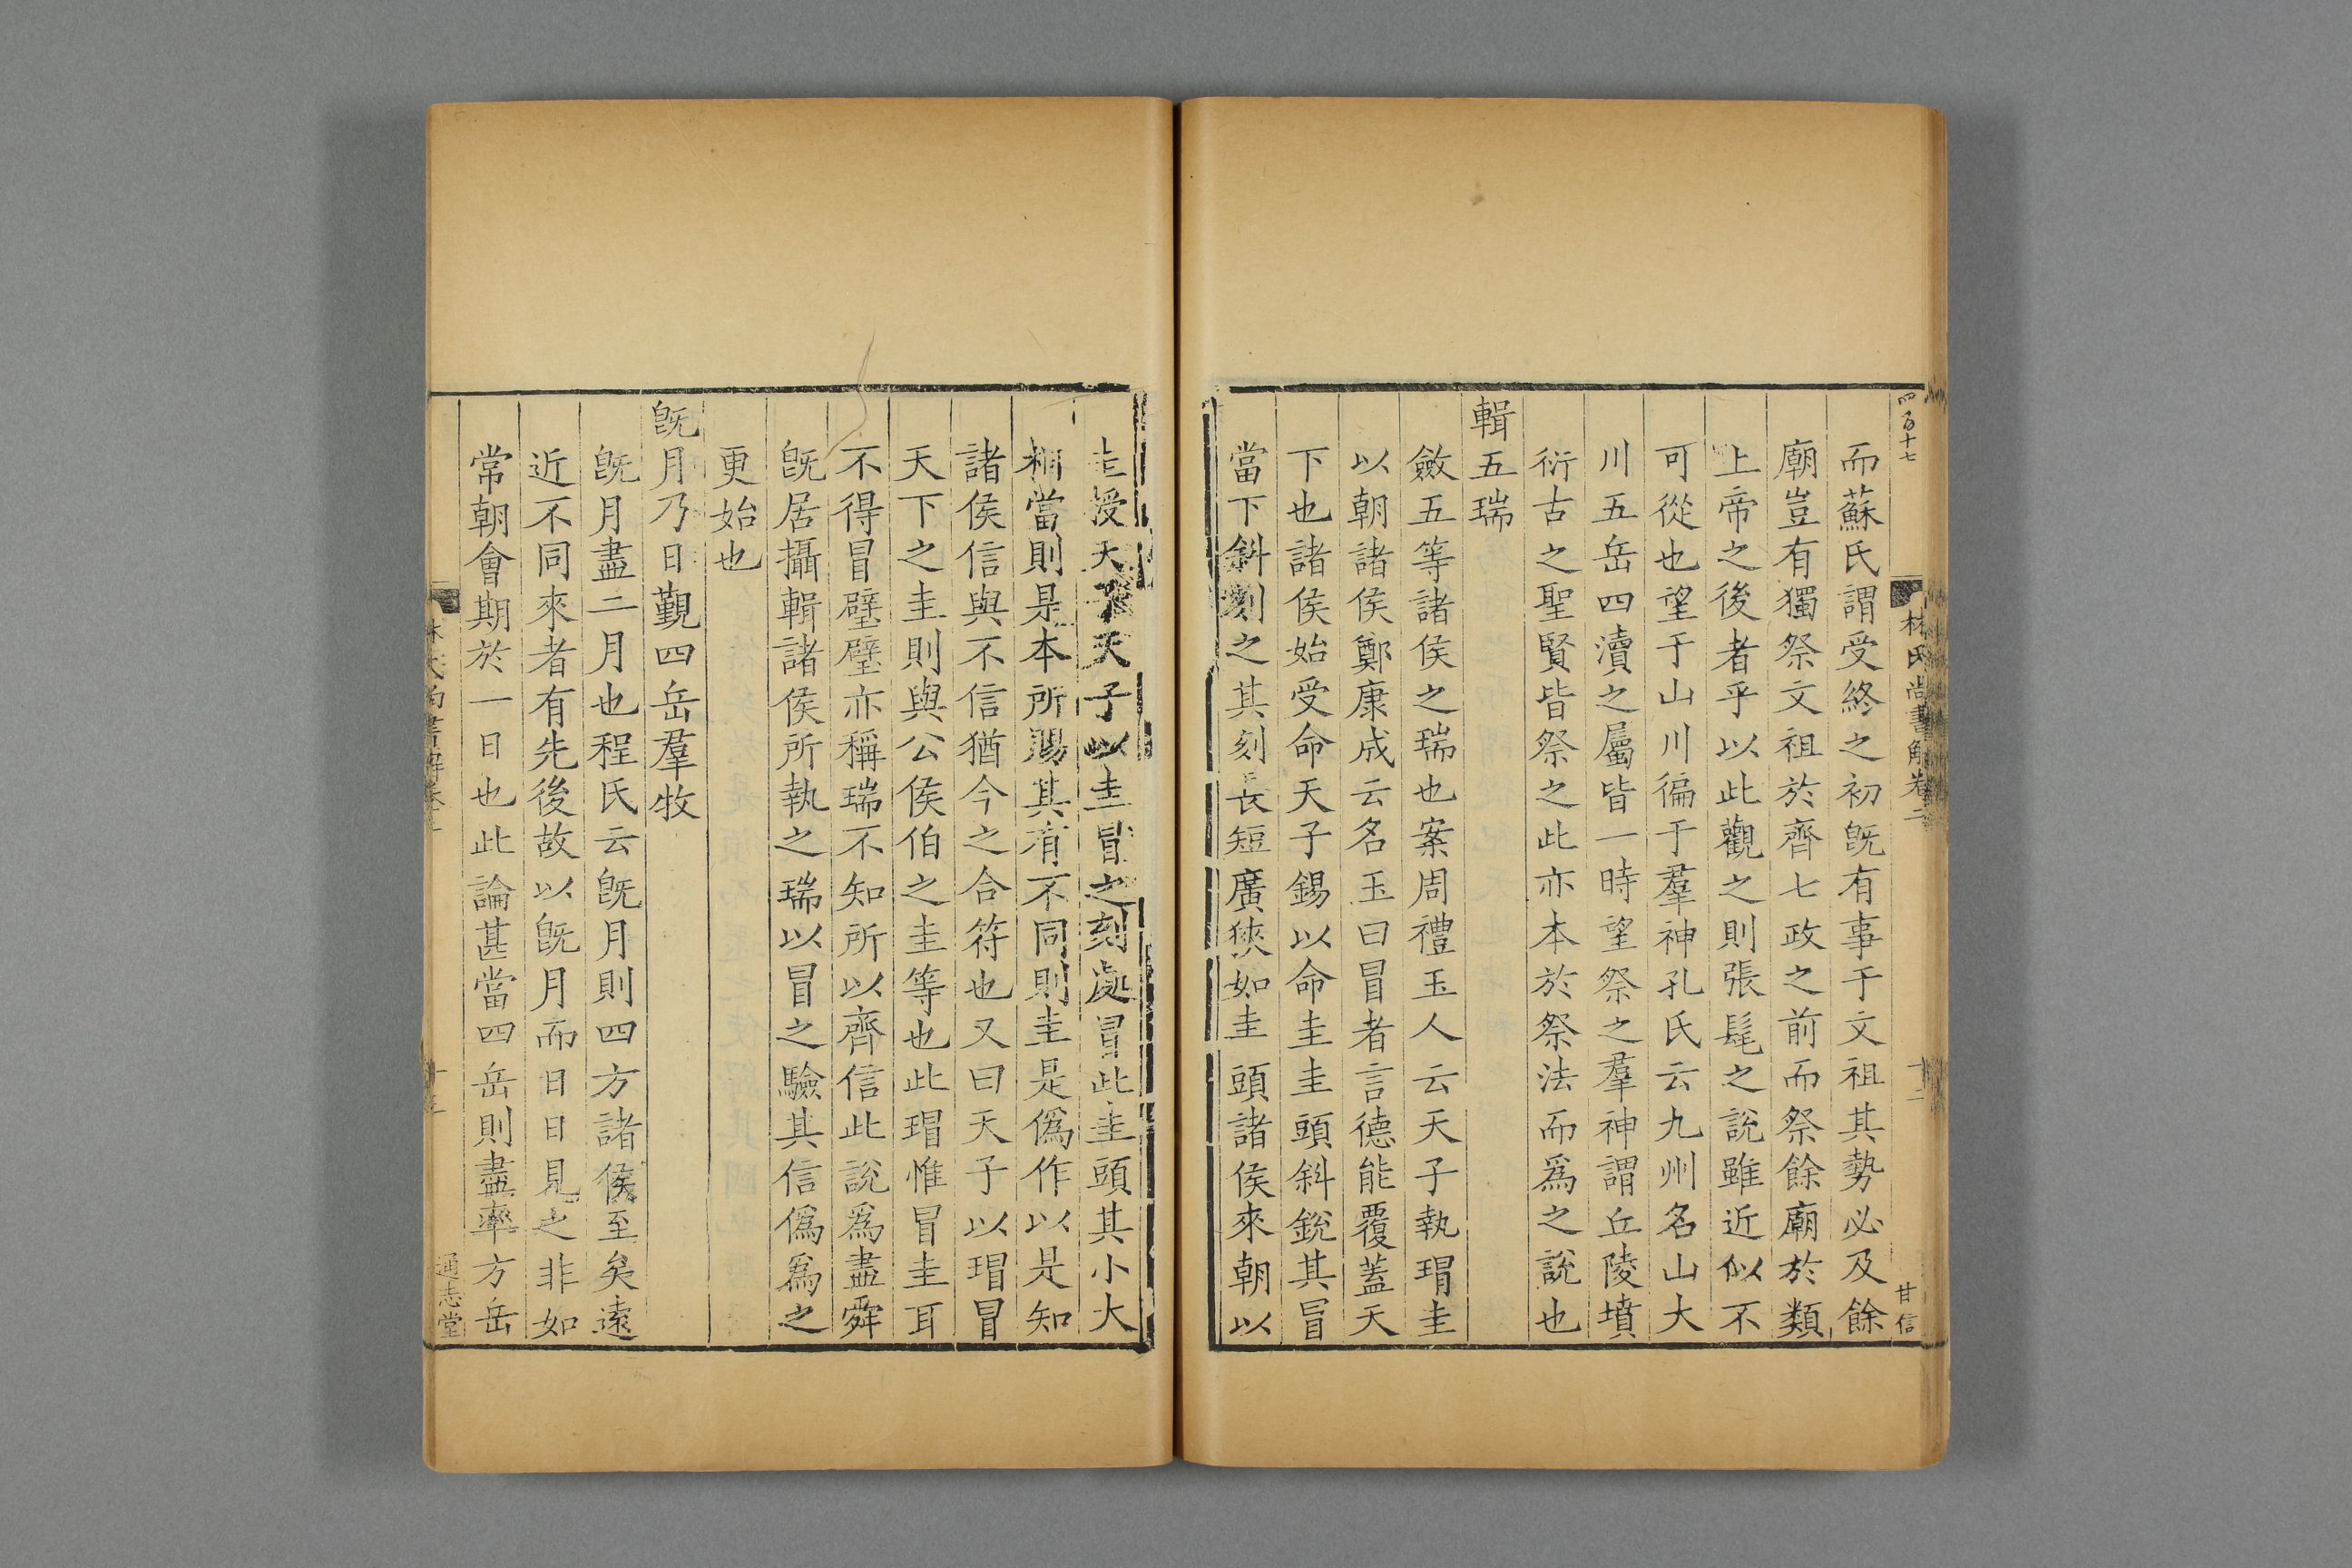 四百十七
林氏尚書解卷二
十二
甘信
而蘇氏謂受終之初旣有事于文祖其勢必及餘
廟豈有獨祭文祖於齊七政之前而祭餘廟於類
上帝之後者乎以此觀之則張髦之說雖近似不
可從也望于山川徧于羣神孔氏云九州名山大
川五岳四瀆之屬皆一時望祭之羣神謂丘陵墳
衍古之聖賢皆祭之此亦本於祭法而爲之說也
輯五瑞
斂五等諸侯之瑞也案周禮玉人云天子執瑁圭
以朝諸侯鄭康成云名玉曰冒者言德能覆蓋天
下也諸侯始受命天子錫以命圭圭頭斜銳其冒
當下斜刻之其刻長短廣狹如圭頭諸侯來朝以
圭授天子天子以圭冒之刻處冒此圭頭其小大
相當則是本所賜其有不同則圭是僞作以是知
諸侯信與不信猶今之合符也又曰天子以瑁冒
天下之圭則與公侯伯之圭等也此瑁惟冒圭耳
不得冒璧璧亦稱瑞不知所以齊信此說爲盡舜
旣居攝輯諸侯所執之瑞以冒之驗其信僞爲之
更始也
旣月乃日覲四岳羣牧
旣月盡二月也程氏云旣月則四方諸侯至矣遠
近不同來者有先後故以旣月而日日見之非如
常朝會期於一日也此論甚當四岳則盡率方岳
通志堂